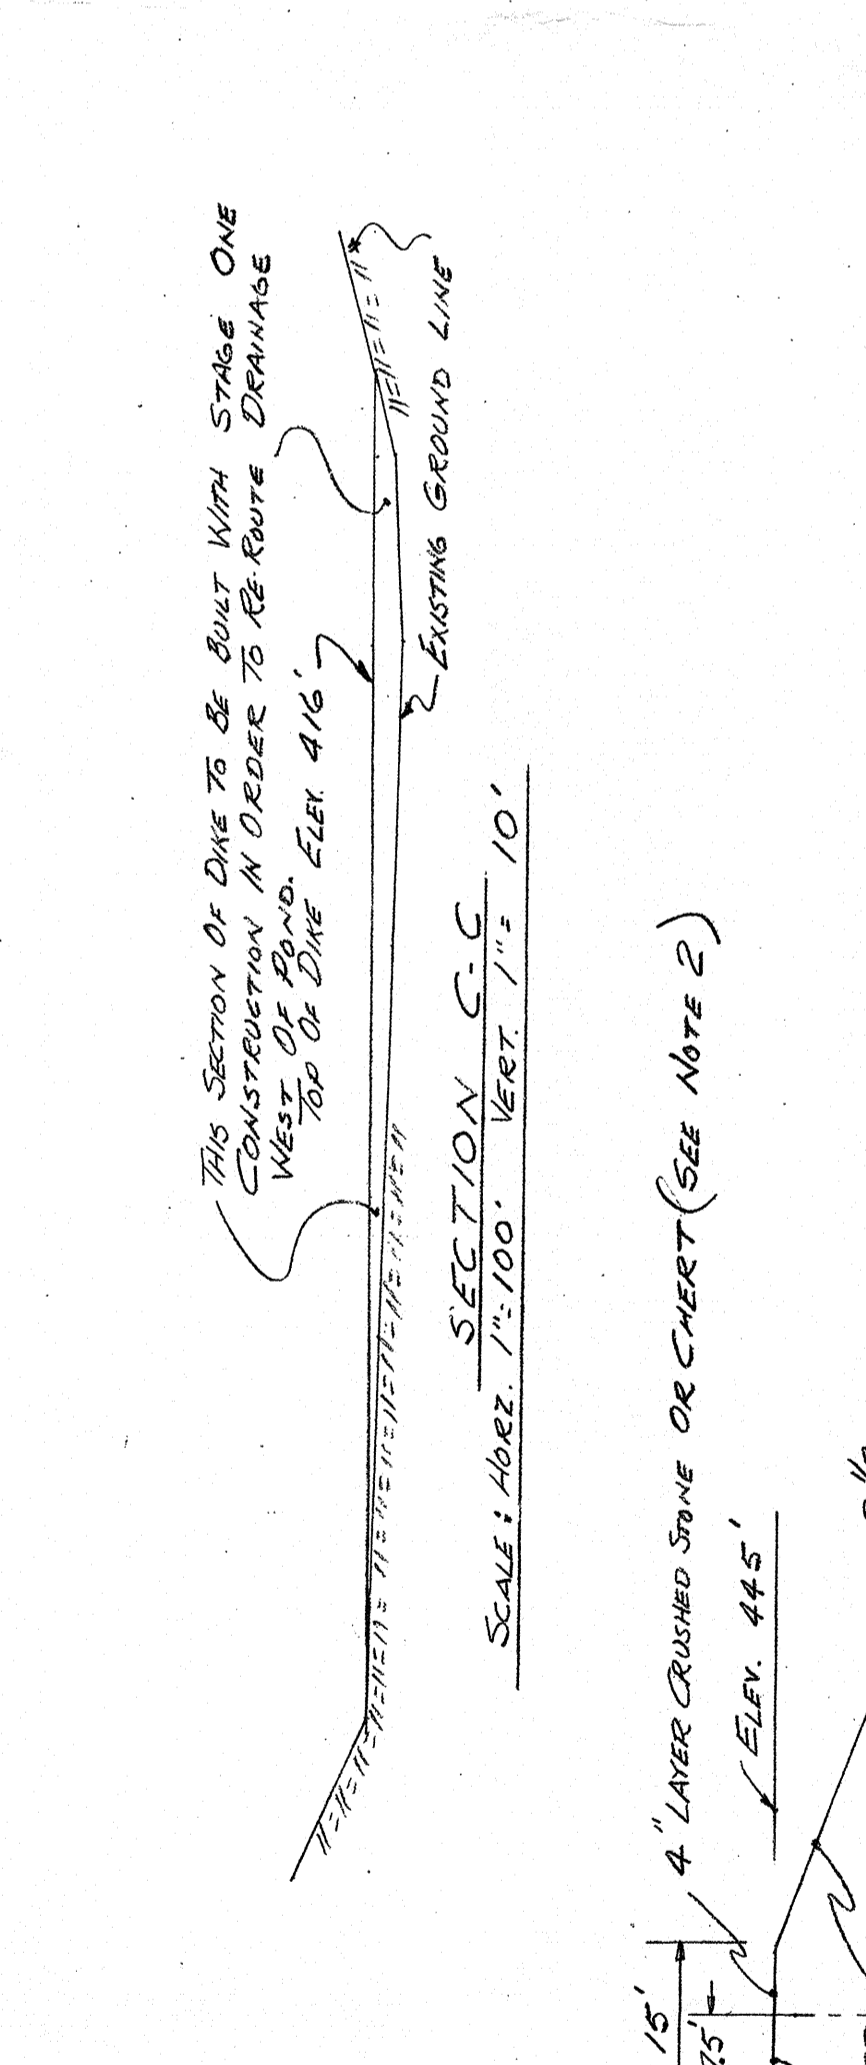 THIS SECTION OF DIKE TO BE BUILT WITH STAGE ONE
CONSTRUCTION IN ORDER TO RE-ROUTE DRAINAGE
WEST OF POND.
TOP OF DIKE ELEV. 416'
EXISTING GROUND LINE
SECTION C-C
SCALE: HORZ. 1"=100' VERT. 1"= 10'
4" LAYER CRUSHED STONE OR CHERT (SEE NOTE 2)
ELEV. 445'
15'